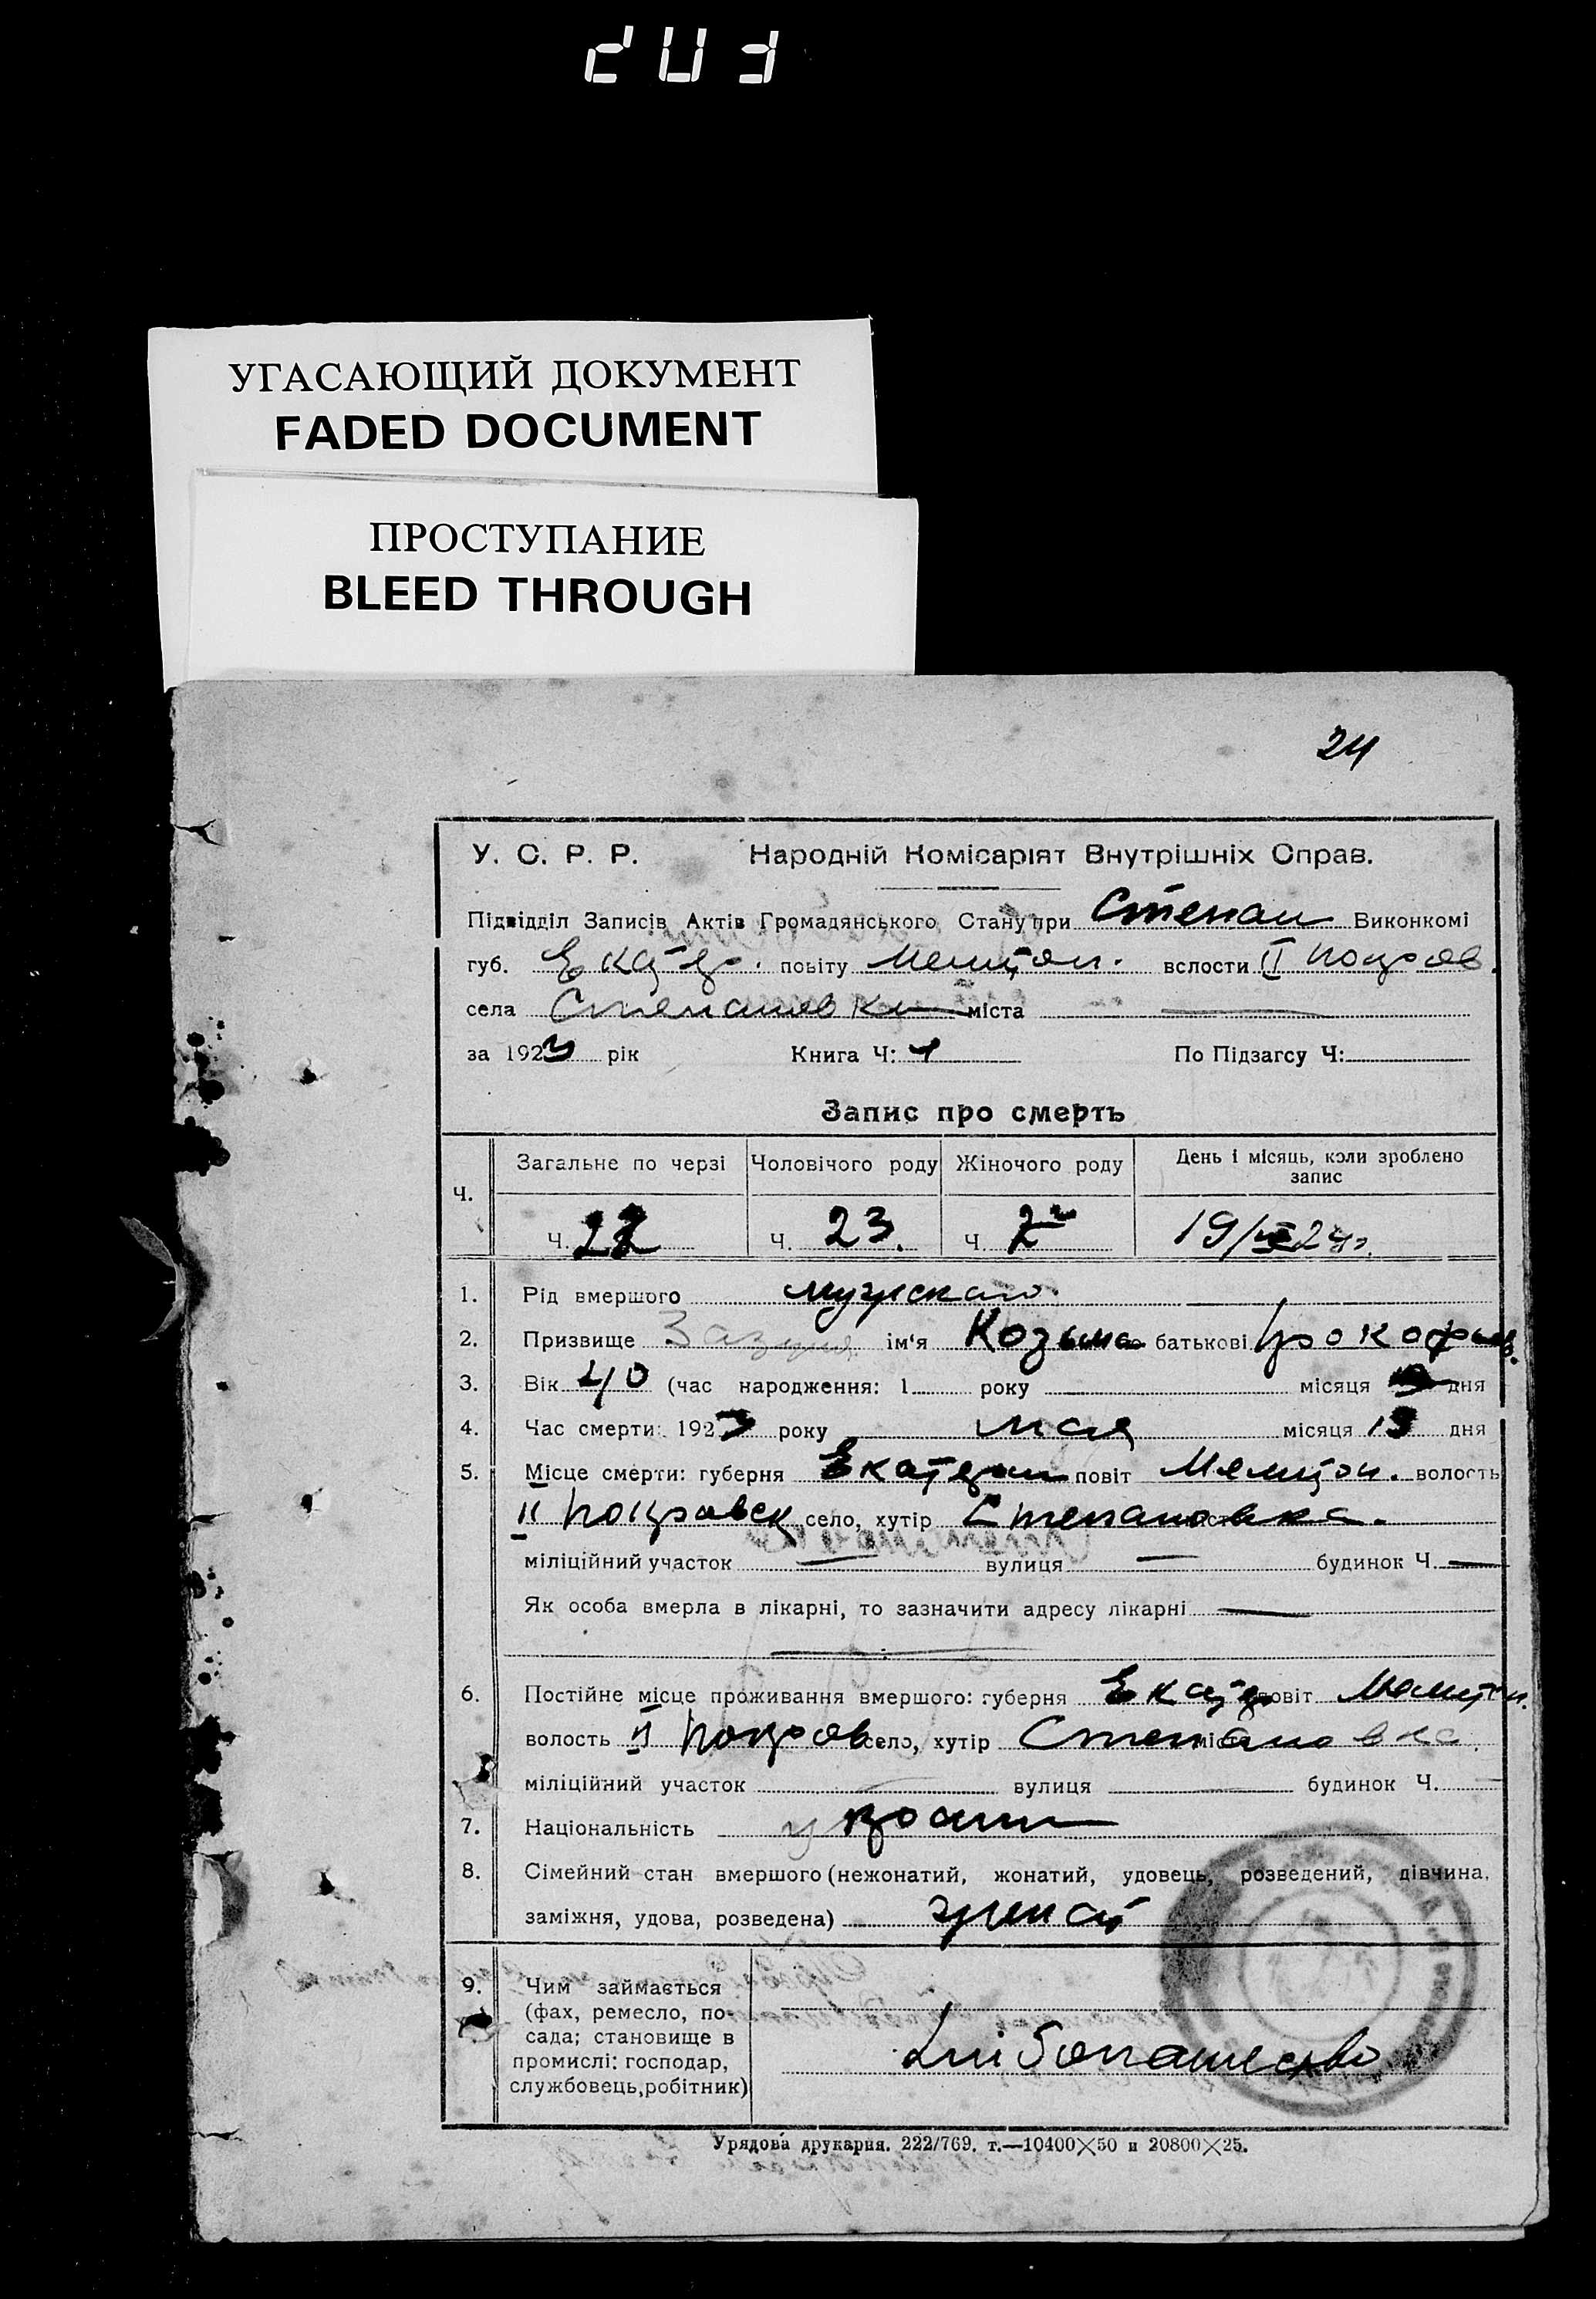 203
УГАСАЮЩИЙ ДОКУМЕНТ
FADED DOCUMENT
ПРОСТУПАНИЕ
BLEED THROUGH
24
У. С. Р. Р. Народній Комісаріят Внутрішніх Справ.
Підвідділ Записів Актів Громадянського Стану при Степан Виконкомі
губ. Екатер. повіту Мелитоп. вслости II Покров.
села Степановки міста
за 1923 рік Книга Ч: 1 По Підзагсу Ч:
Запис про смерть
Ч. Загальне по черзі Чоловічого роду Жіночого роду День і місяць, коли зроблено запис
Ч. Ч. 23. Ч. 19/
1. Рід вмершого мужского
2. Призвище ім'я Козьма по батькові Прокофьев.
3. Вік 40 (час народження: 1 року місяця дня
4. Час смерти: 1923 року мая місяця 13 дня
5. Місце смерти: губерня Екатерин повіт Мелитоп. волость
II Покровск село, хутір Степановка.
міліційний участок вулиця будинок Ч.
Як особа вмерла в лікарні, то зазначити адресу лікарні
6. Постійне місце проживання вмершого: губерня Екатер повіт Мелитоп.
волость II Покров село, хутір Степановка.
міліційний участок вулиця будинок Ч.
7. Національність украин
8. Сімейний стан вмершого (нежонатий, жонатий, удовець, розведений, дівчина,
заміжня, удова, розведена) женат
9. Чим займається
(фах, ремесло, по-
сада; становище в
промислі: господар,
службовець, робітник)
Хлібопашество
Урядова друкарня. 222/769. т.—10400×50 и 20800×25.